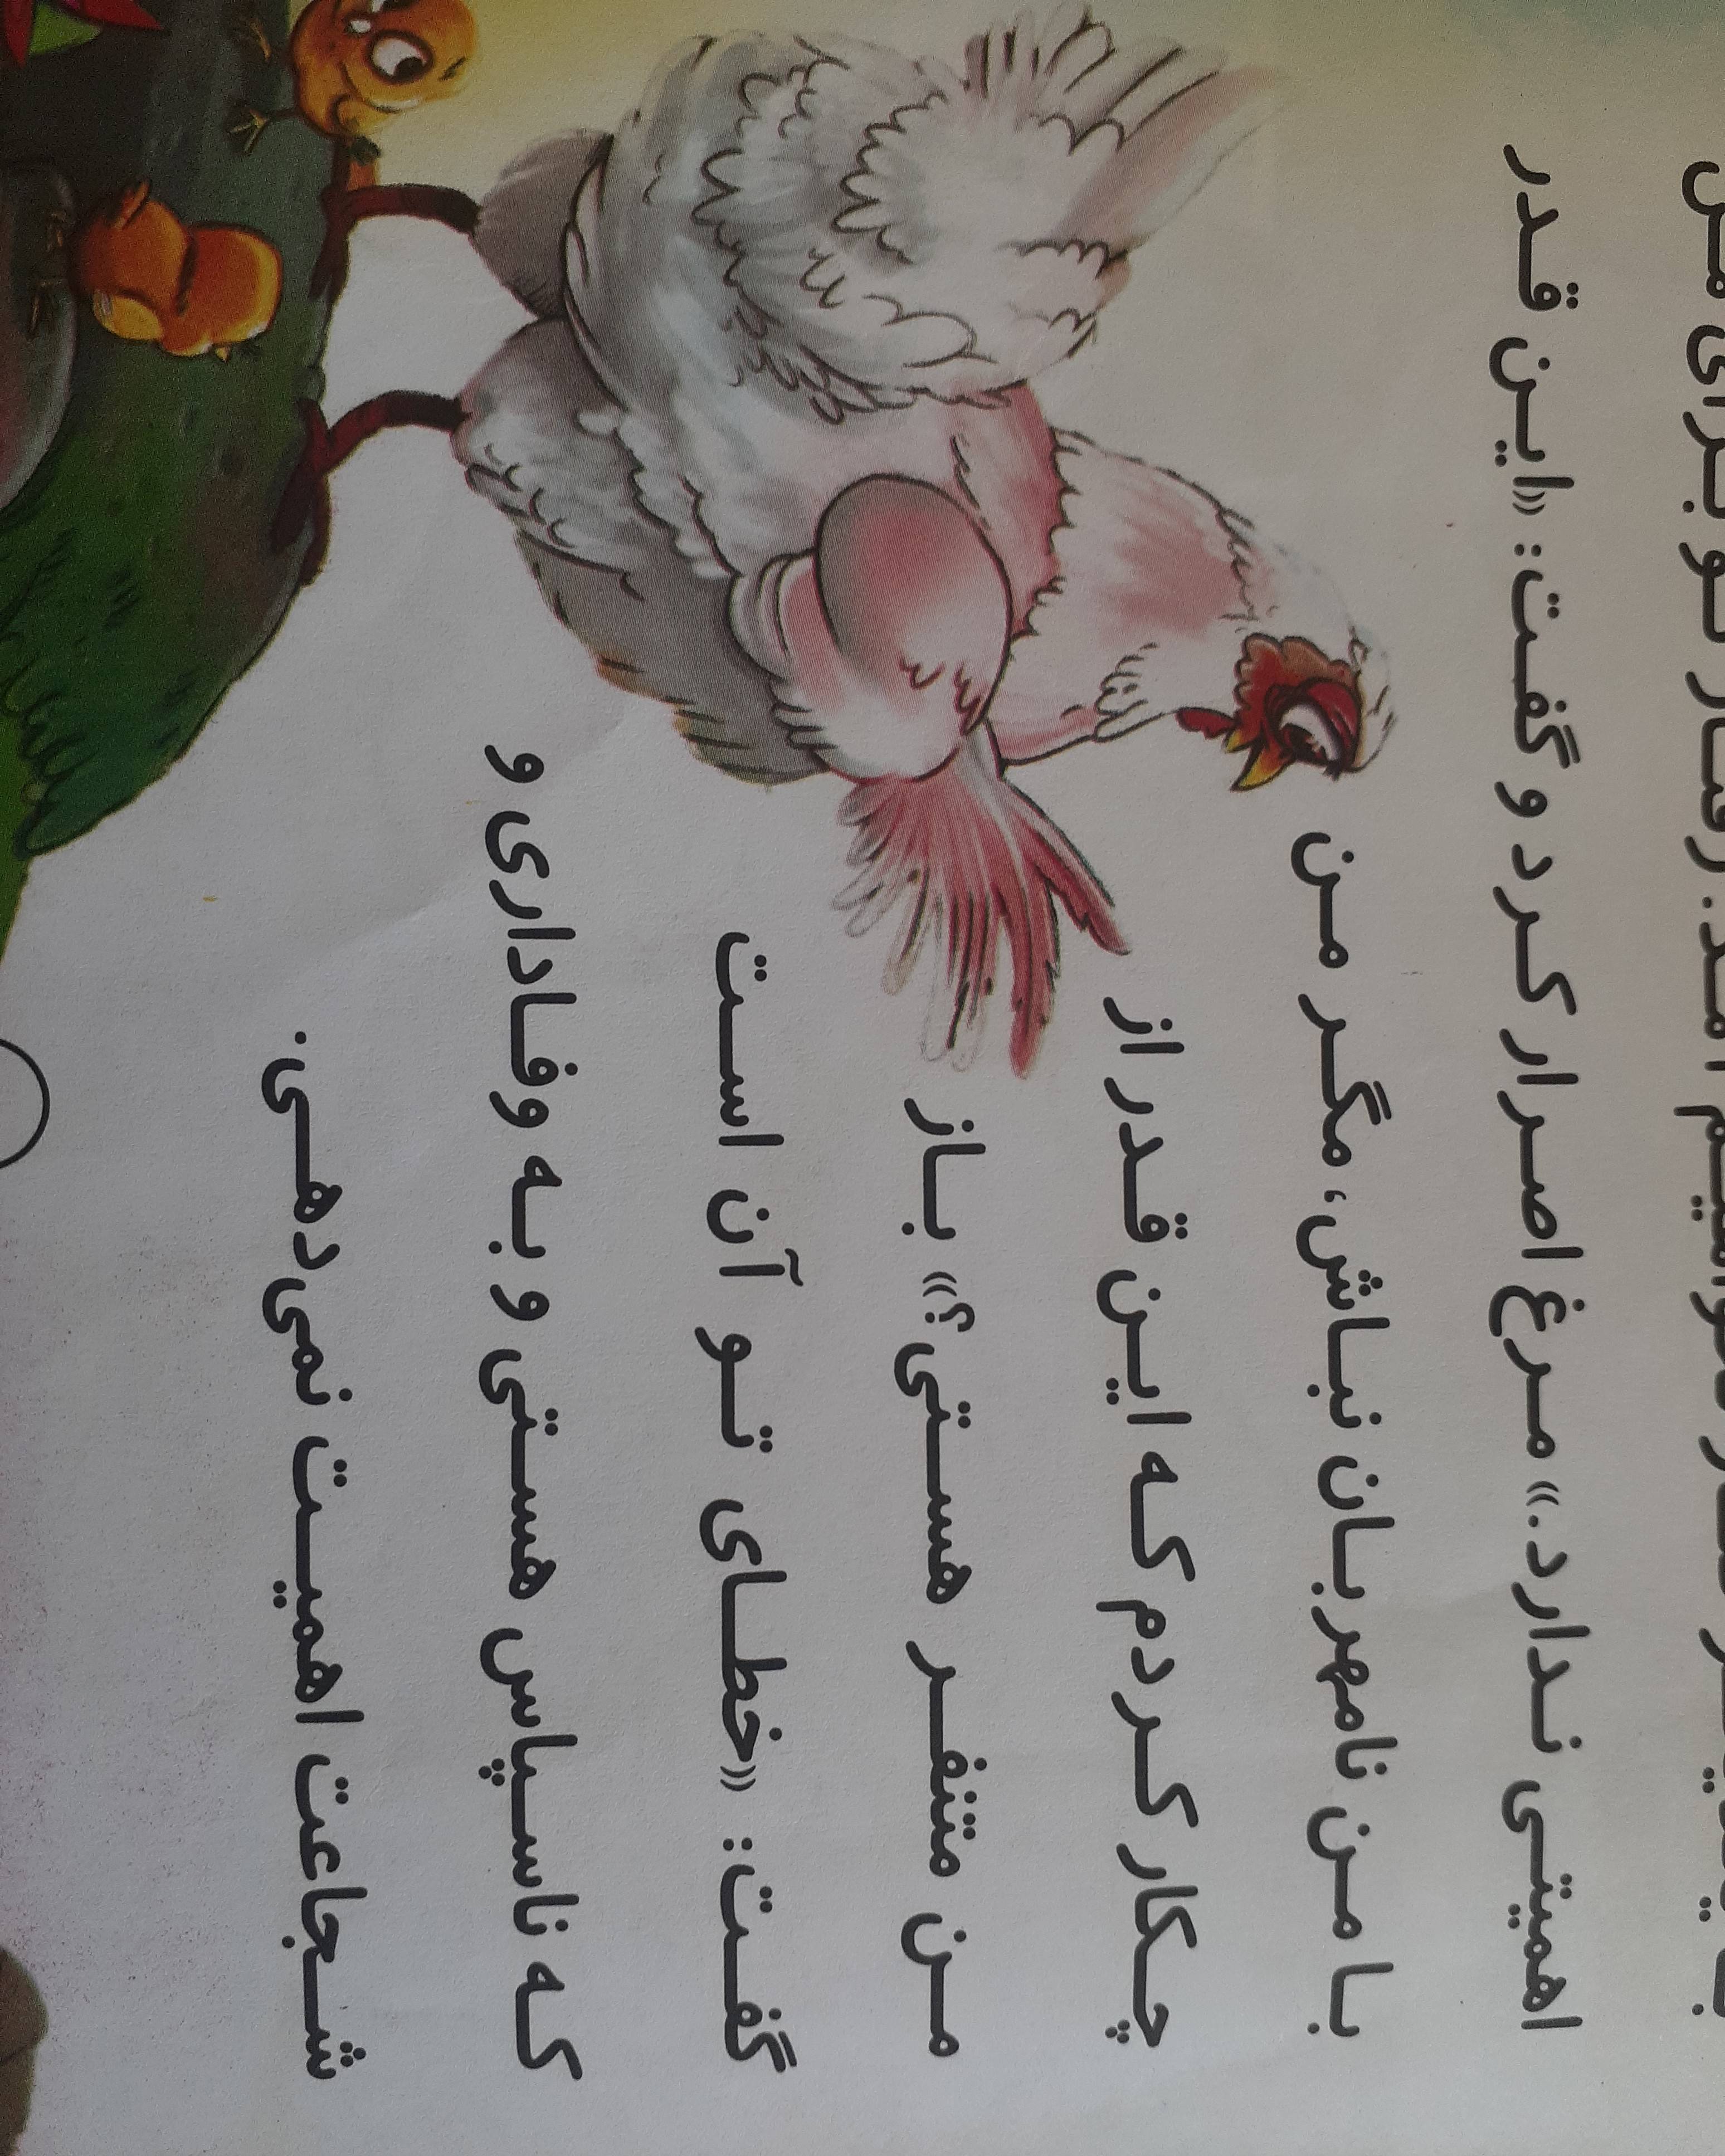 رفتار تو برای من
اهمیتی ندارد.» مرغ اصرار کرد و گفت: «این قدر
با من نامهربان نباش، مگر من
چکار کردم که این قدر از
من متنفر هستی؟» باز
گفت: «خطای تو آن است
که ناسپاس هستی و به وفاداری و
شجاعت اهمیت نمی‌دهی.